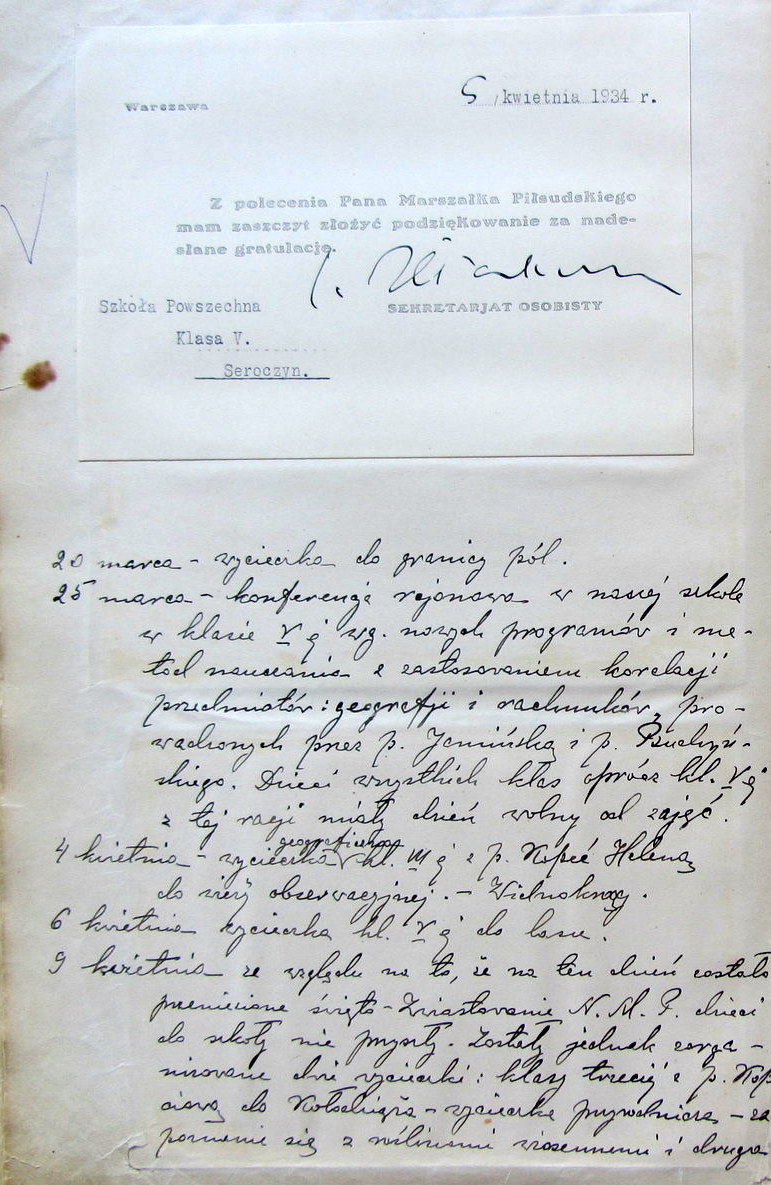 Warszawa
5 kwietnia 1934 r.
Z polecenia Pana Marszałka Piłsudskiego
mam zaszczyt złożyć podziękowanie za nade-
słane gratulacje.
Szkoła Powszechna
SEKRETARJAT OSOBISTY
Klasa V.
Seroczyn.
20 marca - wycieczka do granicy pól.
25 marca - konferencja rejonowa w naszej szkole
w klasie V ej wg. nowych programów i me-
tod nauczania z zastosowaniem korelacji
przedmiotów: geografji i rachunków, pro-
wadzonych przez p. Jamińską i p.
skiego. Dzieci wszystkich klas oprócz kl. V ej
z tej racji miały dzień wolny od zajęć.
4 kwietnia - wycieczka geograficzna kl. III ej z p. Kopeć Heleną
do wieży obserwacyjnej. - Widnokrąg.
6 kwietnia wycieczka kl. V ej do lasu.
9 kwietnia ze względu na to, że na ten dzień zostało
przeniesione święto - Zwiastowanie N. M. P. dzieci
do szkoły nie przyszły. Zostały jednak zorga-
nizowane dwie wycieczki: klasy trzeciej z p. Kop
ciową do - wycieczka przyrodnicza - za
poznanie się z roślinami wiosennemi i druga